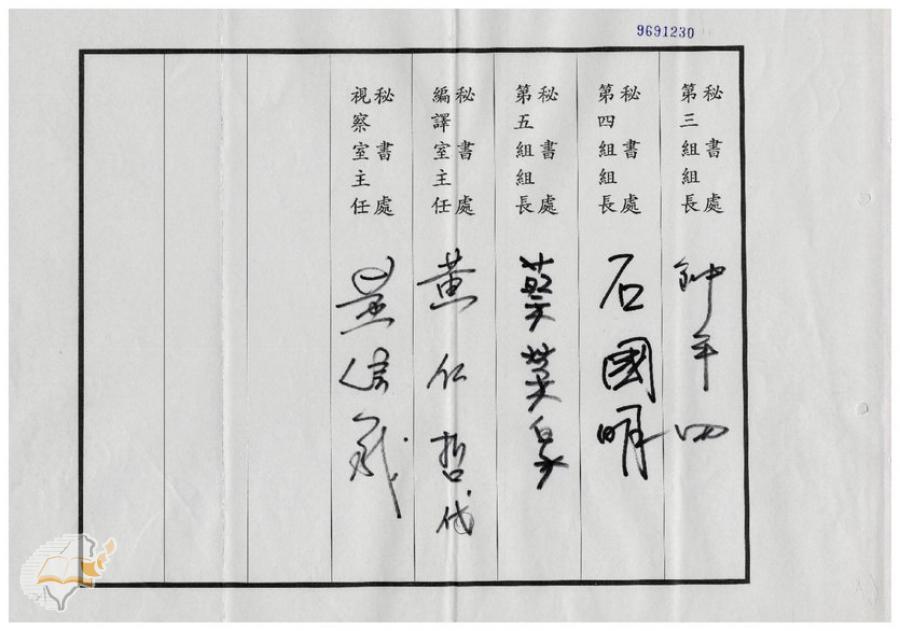 9691230
秘書處
第三組組長
鈡年四
秘書處
第四組組長
石國明
秘書處
第五組組長
蔡榮泉
秘書處
編譯室主任
黃仁哲代
秘書處
視察室主任